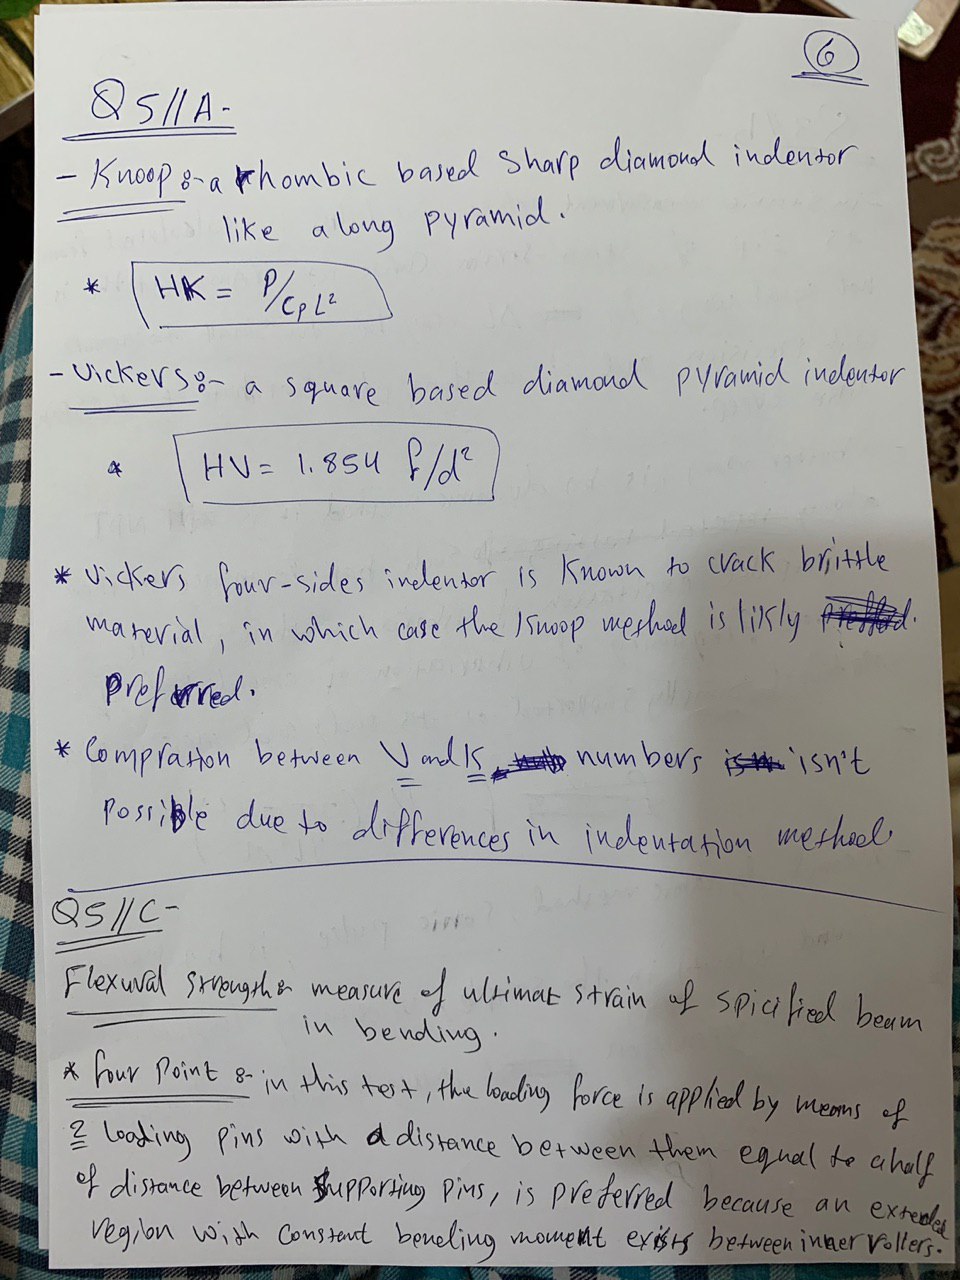 6
Q5//A-
- Knoop:- a rhombic based sharp diamond indentor
like a long pyramid.
* HK = P/CpL²
- Vickers:- a square based diamond pyramid indentor
* HV = 1.854 f/d²
* Vickers four-sides indentor is known to crack brittle
material, in which case the Knoop method is likly
preferred.
* Compration between V and K numbers isn't
possible due to differences in indentation method.
Q5//C-
Flexuval strength:- measure of ultimat strain of spicified beam
in bending.
* four point :- in this test, the loading force is applied by means of
2 loading pins with a distance between them equal to a half
of distance between supporting pins, is preferred because an extended
region with constant bending moment exists between inner rollers.